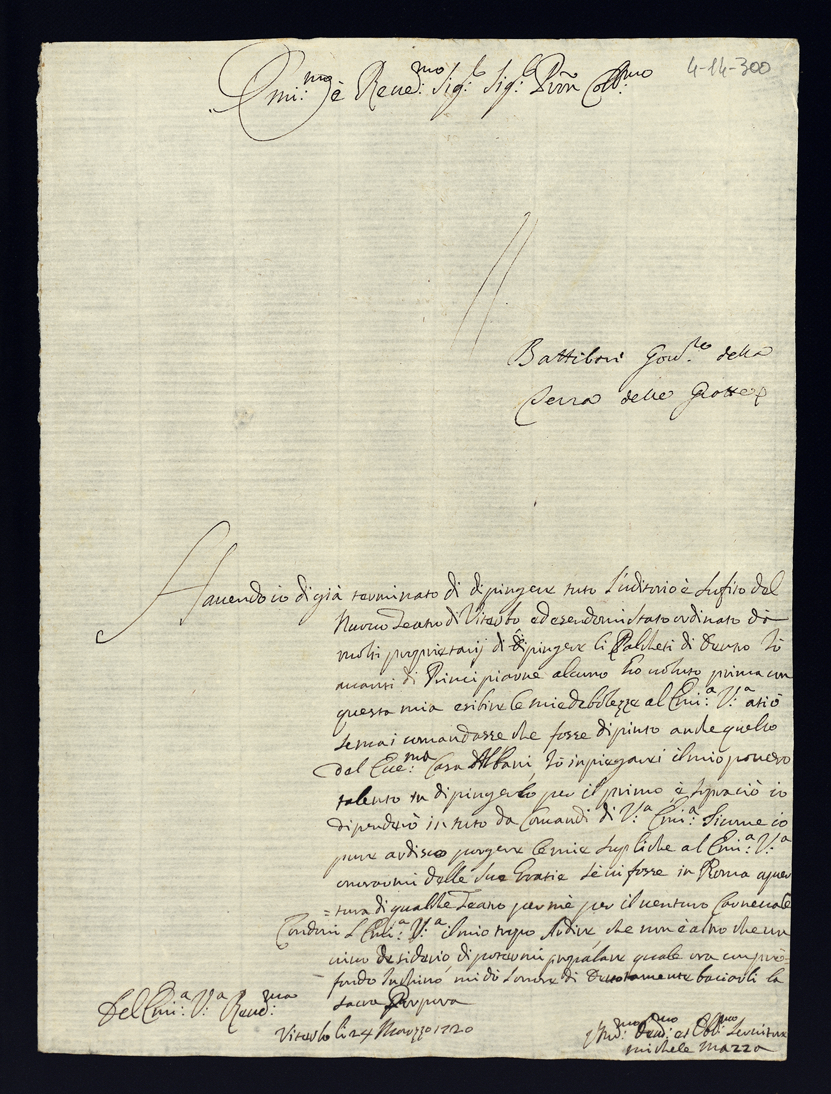 4-14-300
Emi:mo è Reue:mo Sig:e Sig:e Pron Coll:mo
Battibori Gou:re della
Terra delle Grotte
Hauendo io di già terminato di dipingere tuto l'uditorio è sufito del
Nuouo Teatro di Viterbo ed esendomi stato ordinato da
molti proprietarij di dipingere li Palcheti di dentro Io
auanti di Principiarne alcuno ho voluto prima con
questa mia esibire le mie debolezze al Emi:a V:a atiò
se mai comandasse che fosse dipinto anche quello
dal Ece:ma Casa Albani, Io inpiegarei il mio pouero
talento in dipingerlo per il primo è sopraciò io
dipenderò in tuto da Comandi di V:a Emi:a Sicome io
pure ardisco porgere le mie supliche al Emi:a V:a
onorarmi delle Sue Gratie se ui fosse in Roma aper
=tura di qualche Teatro per mè per il uenturo Carneuale
Condoni L'Emi:a V:a il mio tropo Ardire che non è altro che un
uiuo desiderio di potermi propalare quale ora con pro=
fondo Inchino mi dò l'onore di Deuotamente baciarli la
Sacra Porpora
Del Emi:a V:a Reue:ma
Viterbo li 24 Marzzo 1720
Deuo:mo et Obli:mo Seruitore
michele mazza